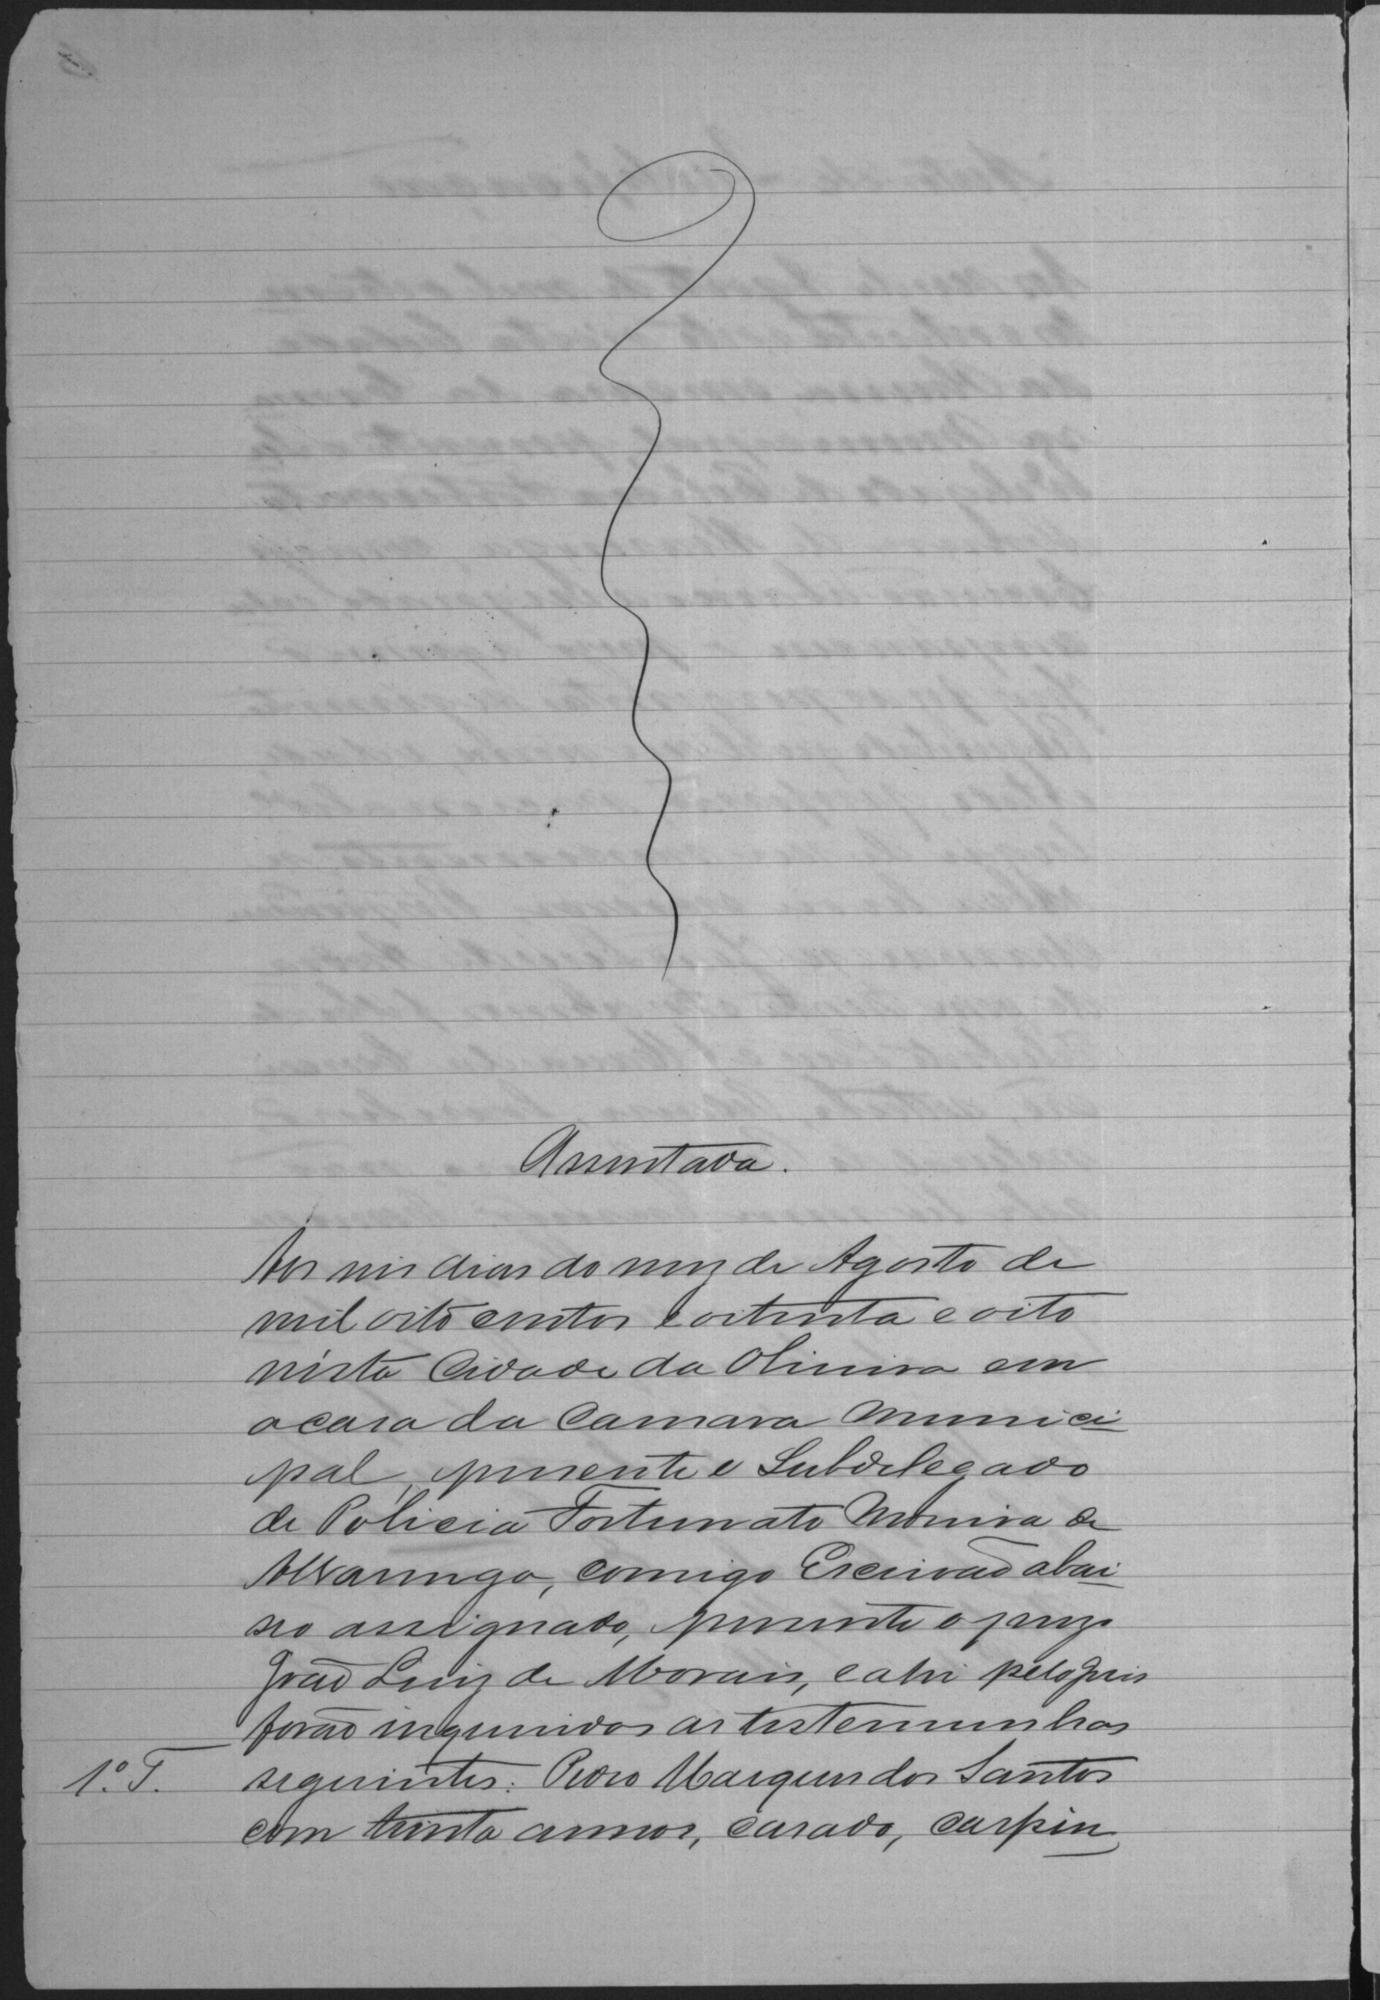 Assentada.
Aos seis dias do mez de Agosto de
mil oito centos e oitenta e oito
nésta Cidade da Oliveira em
a casa da Camara Munici
pal, presente o Subdelegado
de Policia Fortunato Moreira de
Alvarenga, comigo Escrivaõ abai
xo assignado, presente o prezo
Joaõ Luiz de Morais, e ahi pelo Juis
foraõ inqueridos as testemunhas
1.º T. seguintes: Pedro Marques dos Santos
com trinta annos, casado, carpin